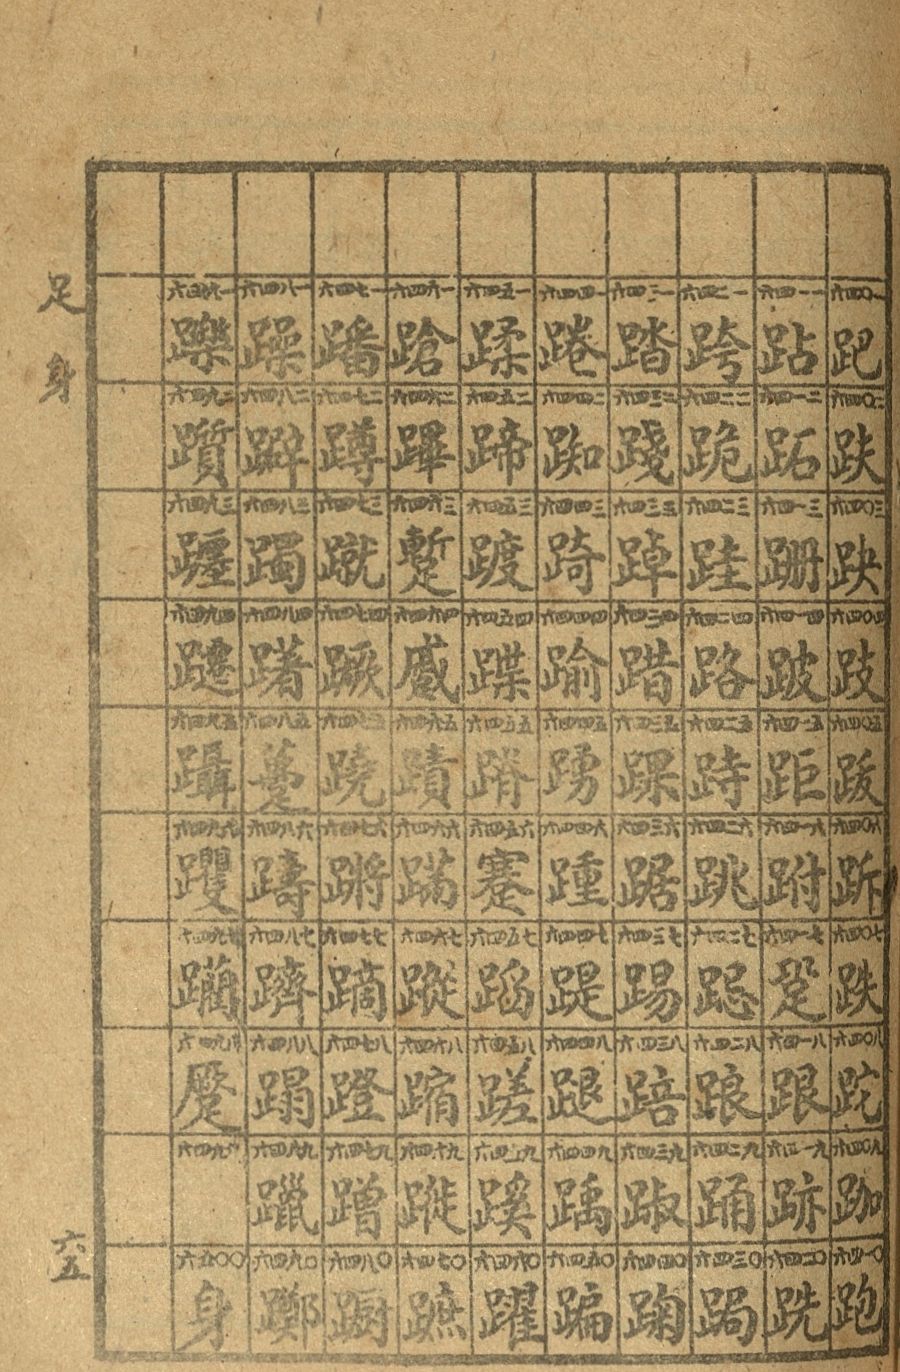 六四〇一 跁
六四〇二 趺
六四〇三 趹
六四〇四 跂
六四〇五 跋
六四〇六 跅
六四〇七 跌
六四〇八 跎
六四〇九 跏
六四一〇 跑
六四一一 跕
六四一二 跖
六四一三 跚
六四一四 跛
六四一五 距
六四一六 跗
六四一七 跫
六四一八 跟
六四一九 跡
六四二〇 跣
六四二一 跨
六四二二 跪
六四二三 跬
六四二四 路
六四二五 跱
六四二六 跳
六四二七 跽
六四二八 踉
六四二九 踊
六四三〇 跼
六四三一 踏
六四三二 踐
六四三三 踔
六四三四 踖
六四三五 踝
六四三六 踞
六四三七 踢
六四三八 踣
六四三九 踧
六四四〇 踘
六四四一 踡
六四四二 踟
六四四三 踦
六四四四 踰
六四四五 踴
六四四六 踵
六四四七 踶
六四四八 蹆
六四四九 踽
六四五〇 蹁
六四五一 蹂
六四五二 蹄
六四五三 踱
六四五四 蹀
六四五五 蹐
六四五六 蹇
六四五七 蹈
六四五八 蹉
六四五九 蹊
六四六〇 躍
六四六一 蹌
六四六二 蹕
六四六三 蹔
六四六四 蹙
六四六五 蹟
六四六六 蹣
六四六七 蹤
六四六八 蹜
六四六九 蹝
六四七〇 蹠
六四七一 蹯
六四七二 蹲
六四七三 蹴
六四七四 蹶
六四七五 蹺
六四七六 蹡
六四七七 蹢
六四七八 蹬
六四七九 蹭
六四八〇 蹰
六四八一 躁
六四八二 躃
六四八三 躅
六四八四 躇
六四八五 躉
六四八六 躊
六四八七 躋
六四八八 蹋
六四八九 躐
六四九〇 躑
六四九一 躒
六四九二 躓
六四九三 躔
六四九四 躚
六四九五 躡
六四九六 躩
六四九七 躪
六四九八
六四九九
六五〇〇 身
足 身
六五